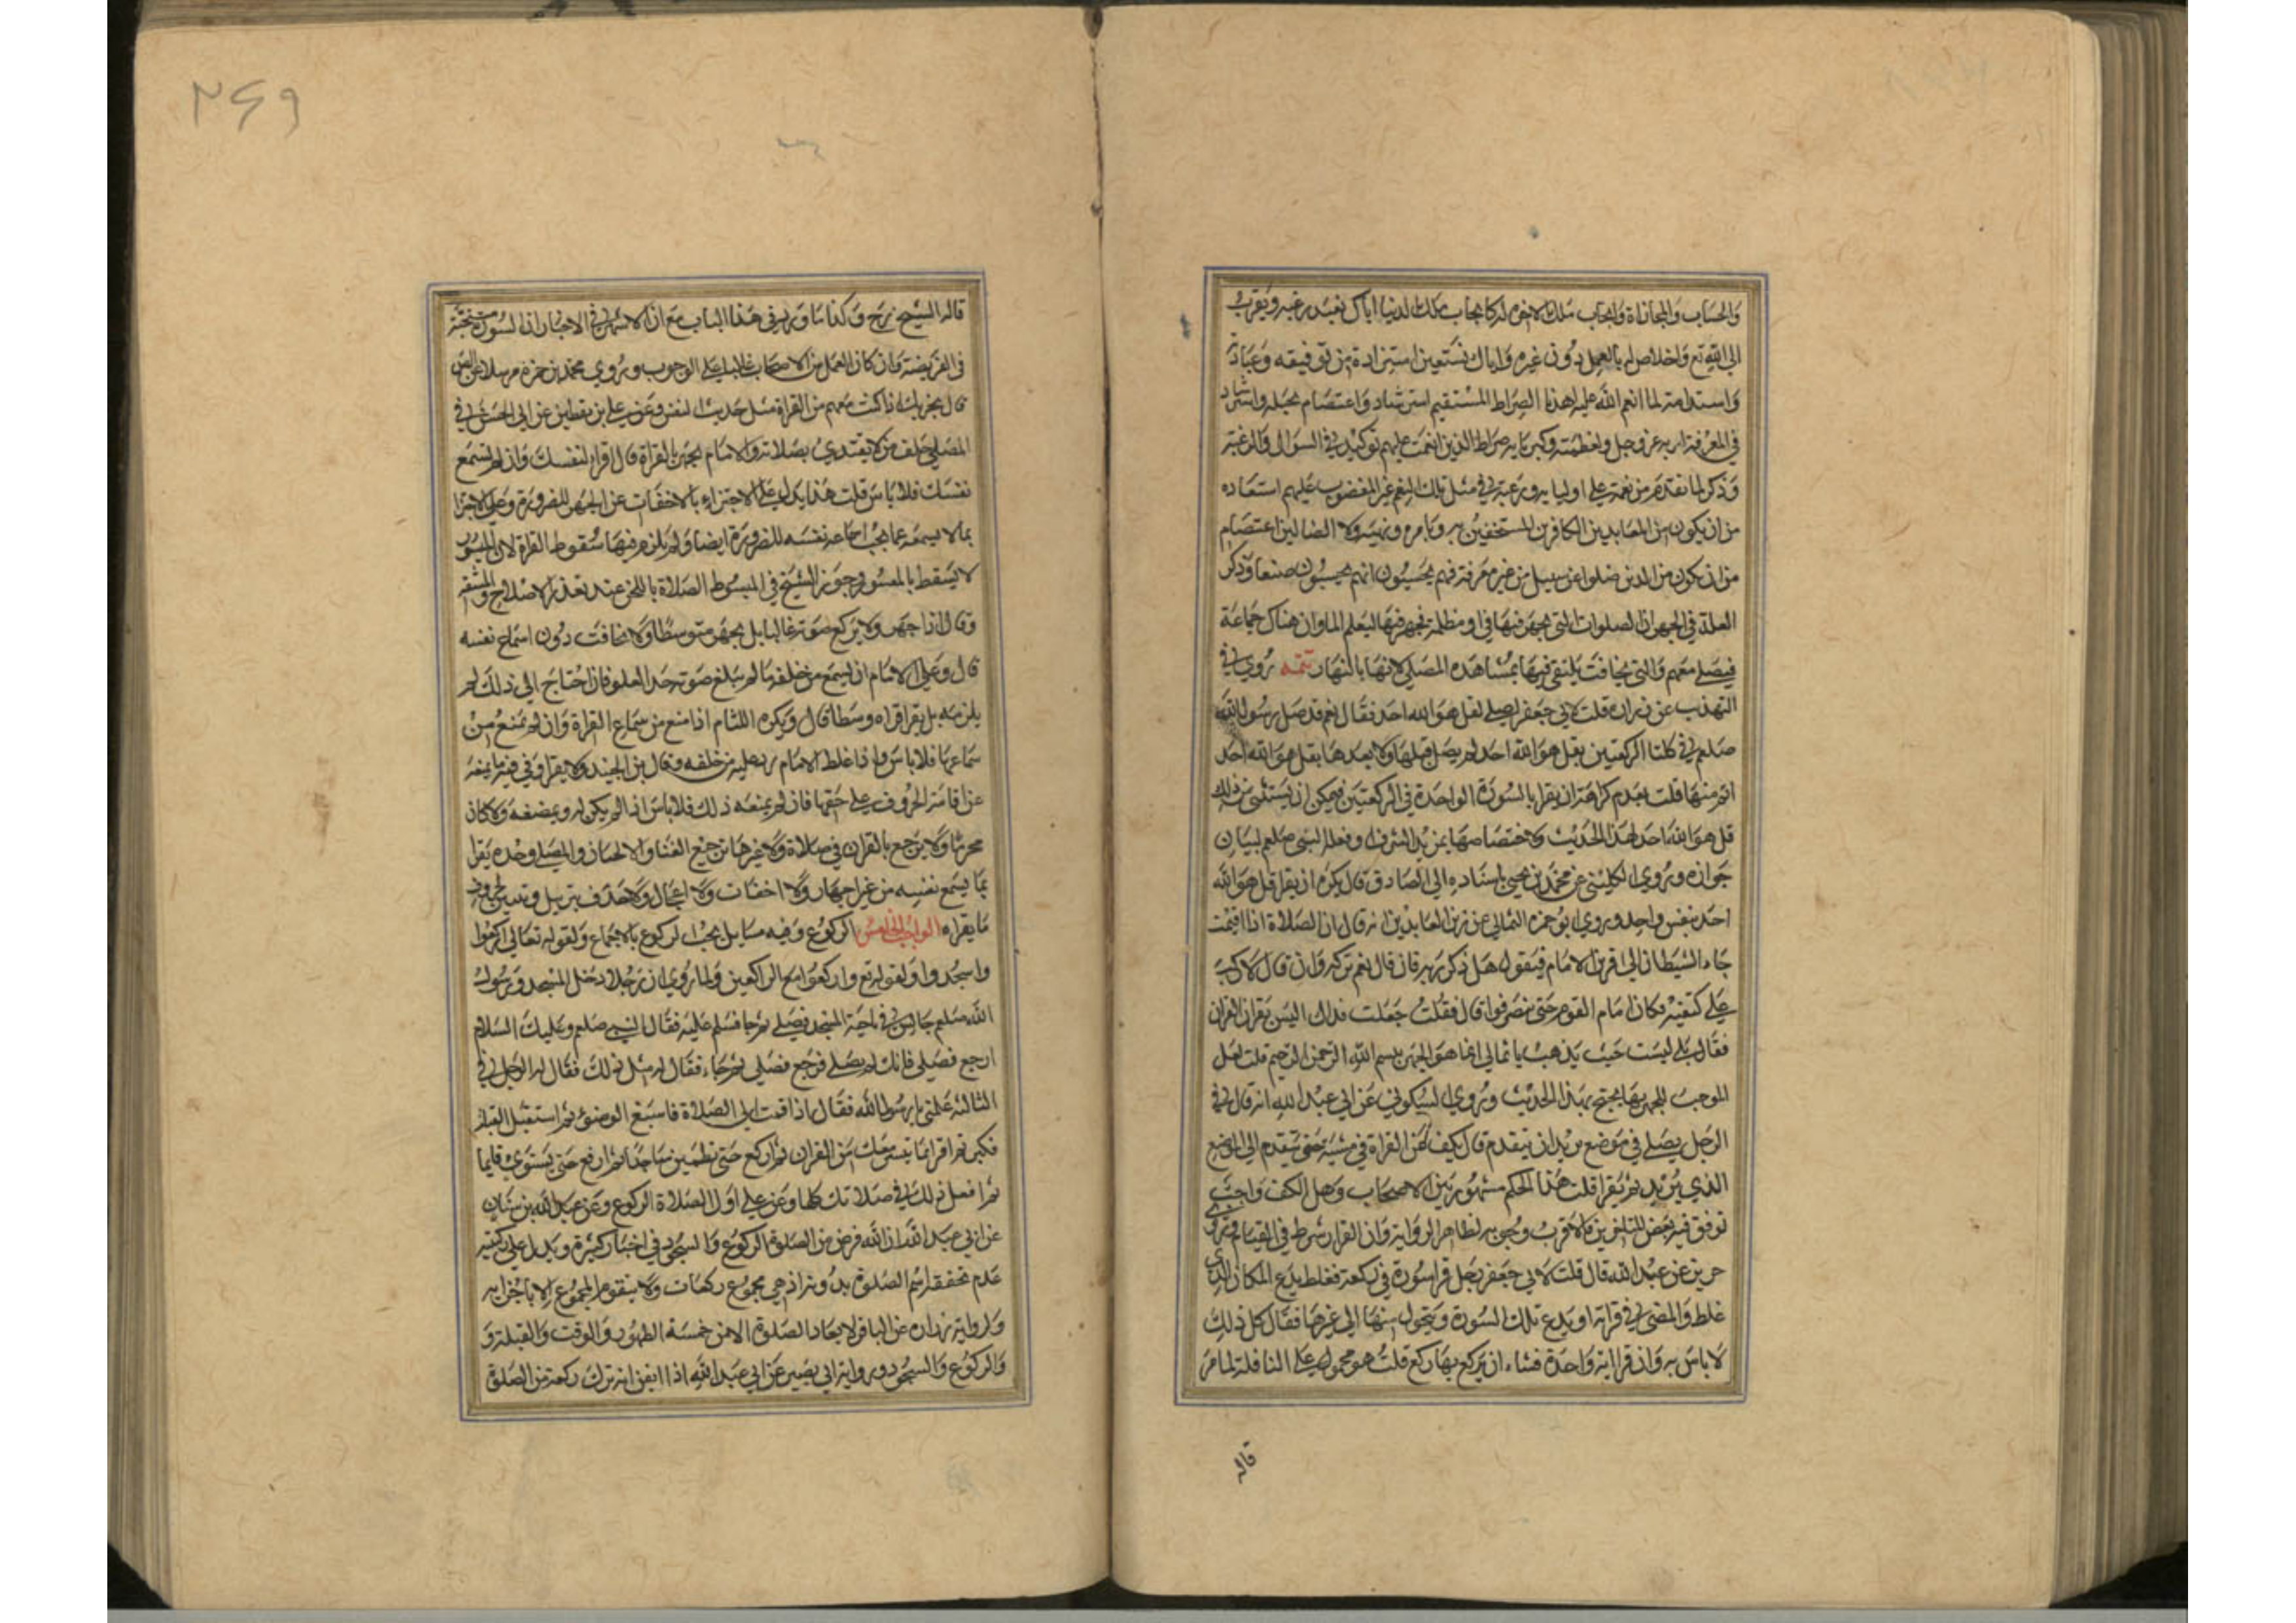 والحساب والمجازاة وايجاب ملك الاخرة له كايجاب ملك الدنيا اياك نعبد رغبة وتقرب
الى الله تع واخلاص له بالعمل دون غيره واياك نستعين استزادة من توفيقه وعبادته
واستدامة لما انعم الله عليه اهدنا الصراط المستقيم استرشاد واعتصام بحبله واستزاد
في المعرفة لربه عز وجل ولعظمته وكبريايه صراط الذين انعمت عليهم توكيد في السؤال والرغبة
وذكر لما تقدم من نعمه على اوليايه ورغبة في مثل تلك النعم غير المغضوب عليهم استعاده
من ان يكون من المعاندين الكافرين المستخفين به وبامره ونهيه ولا الضالين اعتصام
من ان يكون من الذين ضلوا عن سبيل من غير معرفة فهم يحسبون انهم يحسنون صنعا وذكر
العلة في الجهر ان الصلوات التي يجهر فيها في اوقات مظلمة فجهر فيها ليعلم المار ان هناك جماعة
فيصلي معهم والتي يخافت يكتفى فيها بمشاهدة المصلي لانها بالنهار تتمه روي في
التهذيب عن زراره قلت لابي جعفر اصلي بقل هو الله احد فقال نعم قد صلى رسول الله
صلعم في كلتا الركعتين بقل هو الله احد لم يصل قبلها ولا بعدها بقل هو الله احد
اتم منها قلت بعدم كراهة ان يقرا بالسورة الواحدة في الركعتين فيمكن ان يستثنى من ذلك
قل هو الله احد لهذا الحديث ولاختصاصها بمزيد الشرف او فعله النبي صلعم لبيان
جوازه وروى الكليني عن محمد بن يحيى باسناده الى الصادق قال يكره ان يقرا قل هو الله
احد بنفس واحد وروى ابو حمزه الثمالي عن زين العابدين انه قال ان الصلاة اذا اقيمت
جاء الشيطان الى قرين الامام فيقول هل ذكر ربه فان قال نعم تركه وان قال لا ركب
على كتفيه فكان امام القوم حتى ينصرفوا قال فقلت جعلت فداك اليس يقرؤن القران
فقال بلى ليست حيث يذهب يا ثمالي انما هو الجهر ببسم الله الرحمن الرحيم قلت لعل
الموجب للجهر بها يحتج بهذا الحديث وروى السكوني عن ابي عبد الله انه قال في
الرجل يصلي في موضع يريد ان يتقدم قال يكف عن القراة في مشيه حتى يتقدم الى الموضع
الذي يريد ثم يقرا قلت هذا الحكم مشهور بين الاصحاب وهل الكف واجب
توقف فيه بعض المتاخرين والاقرب وجوبه لظاهر الرواية وان القرار شرط في القيام وروى
حريز عن عبد الله قال قلت لابي جعفر رجل قرا سورة في ركعة فغلط يدع المكان الذي
غلط والمضي في قراته او يدع تلك السورة ويتحول منها الى غيرها فقال كل ذلك
لا باس به وان قرا اية واحدة فشاء ان يركع بها ركع قلت هو محمول على النافلة لما مر
قاله
٢٤٩
قاله الشيخ رح وكذا ما ورد في هذا الباب مع ان الاشهر في الاخبار ان السورة مستحبة
في الفريضة وان كان العمل من الاصحاب غالبا على الوجوب وروي محمد بن حمزة مرسلا عن الص
قال يجزيك اذا كنت معهم من القراة مثل حديث النفس وعن علي بن يقطين عن ابي الحسن في
المصلي خلف من لا يقتدي بصلاته والامام يجهر بالقراة قال اقرا لنفسك وان لم تسمع
نفسك فلا باس قلت هذا يدل على الاجتزاء بالاخفات عن الجهر للضرورة وعلى الاجتزا
بما لا يسمعه عما يجب اسماعه نفسه للضرورة ايضا ولم يلزم فيها سقوط القراة لان الميسور
لا يسقط بالمعسور وجوز الشيخ في المبسوط الصلاة باللحن عند تعذر الاصلاح والمشقه
وقال اذا جهر ولا يرفع صوته غالبا بل يجهر متوسطا ولا يخافت دون اسماع نفسه
قال وعلى الامام ان يسمع من خلفه ما لم يبلغ صوته حد العلو فان احتاج الى ذلك لم
يلزمه بل يقرا قراه وسطا قال ويكره اللثام اذا منع من سماع القراة وان لم تمنع من
سماعها فلا باس واذا غلط الامام رد عليه من خلفه وقال ابن الجنيد ولا يقرا وفي فيه ما يمنعه
عن اقامة الحروف على حقها فان لم يمنعه ذلك فلا باس اذا لم يكن له ويمضغه ولا كان
محرما ولا يرجع بالقران في صلاة ولا غيرها ترجيع الغنا والالحان والمصلي وحده يقرا
بما يسمع نفسه من غير اجهار ولا اخفات ولا اعجال ولا حذف بترتيل وتبيين لحروف
ما يقراه الواجب الخامس الركوع وفيه مسايل يجب الركوع بالاجماع ولقوله تعالى اركعوا
واسجدوا ولقوله تع واركعوا مع الراكعين ولما روي ان رجلا دخل المسجد ورسول
الله صلعم جالس في ناحية المسجد فصلى ثم جا فسلم عليه فقال النبي صلعم وعليك السلام
ارجع فصلي فانك لم تصلي فرجع فصلى ثم جاء فقال له مثل ذلك فقال له الرجل في
الثالثه علمني يا رسول الله فقال اذا قمت الى الصلاة فاسبغ الوضوء ثم استقبل القبلة
فكبر ثم اقرا بما تيسر معك من القران ثم اركع حتى تطمين ساجدا ثم ارفع حتى تستوي قايما
ثم افعل ذلك في صلاتك كلها وعن علي اول الصلاة الركوع وعن عبد الله بن سنان
عن ابي عبد الله ان الله فرض من الصلوة الركوع والسجود في اخبار كثيرة ويدل على ركنيته
عدم تحقق اسم الصلوة بدونه اذ هي مجموع ركعات ولا يتقوم المجموع الا باجزايه
ولرواية زراره عن الباقر لا يعاد الصلوة الا من خمسة الطهور والوقت والقبلة و
والركوع والسجود ورواية ابي بصير عن ابي عبد الله اذا ايقن انه ترك ركعة من الصلوة